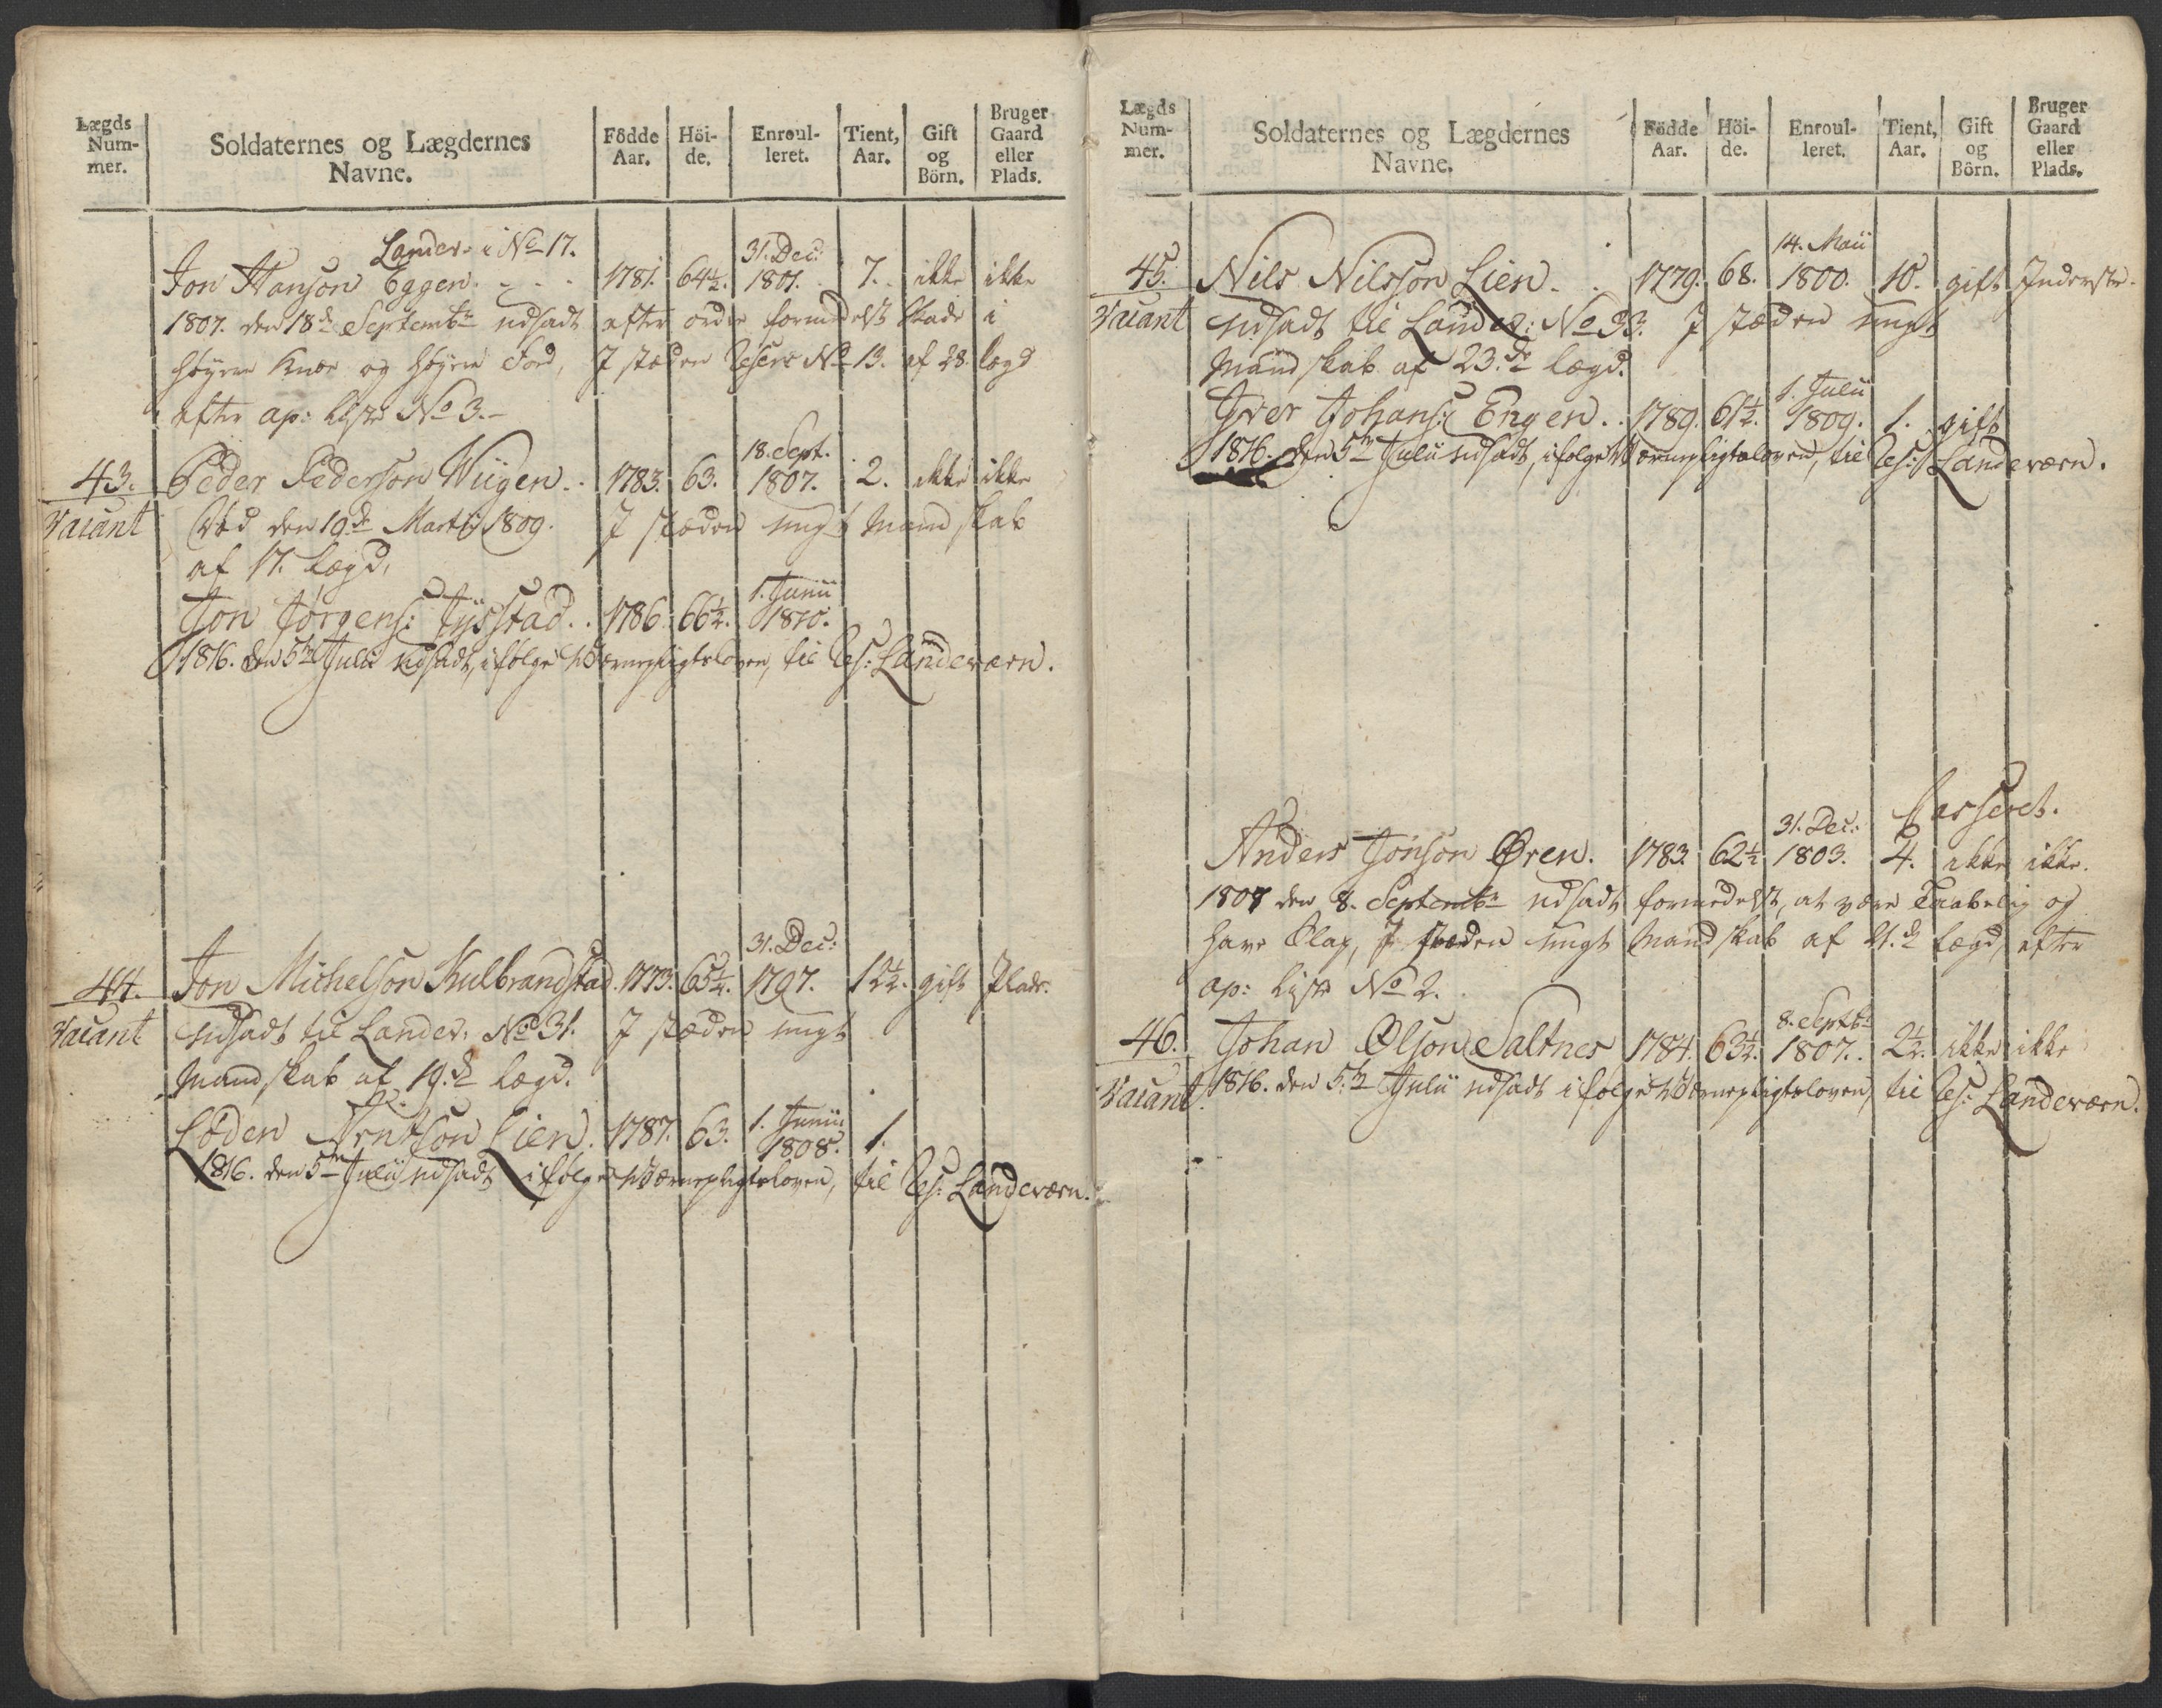 Lægds Num- mer.
Soldaternes og Lægdernes Navne.
Födde Aar.
Höi- de.
Enroul- leret.
Tient, Aar.
Gift og Börn.
Bruger Gaard eller Plads.
Landev: i No 17.
31. Dec:
Jon Hanson Eggen. 1781. 64½. 1801. 7. ikke ikke
1807. den 18de Septembr udsadt efter ordre formedelst skade i
höyre Knæ og höyre Fod, I stæden Reserv No 13. af 28. lægd
efter ap: liste No 3.
18. Sept.
43. Peder Pederson Wiigen. 1783. 63. 1807. 2. ikke ikke
Vacant Död den 19de Martii 1809. I stæden ungt Mandskab
af 17. lægd.
1. Junii
Jon Jörgens: Tÿsstad. 1786. 66½. 1810.
1816. den 5te Julii udsadt, ifölge Værnepligtsloven, til Res: Landeværn.
31. Dec:
44. Jon Michelson Kulbrandstad. 1773. 65¼. 1797. 12½. gift Plads.
Vacant udsadt til Landev: No 31. I stæden ungt
Mandskab af 19.de lægd.
1. Junii
Loden Arntson Lien. 1787. 63. 1808. 1.
1816. den 5te Julii udsadt ifölge Værnepligtsloven, til Res: Landeværn.
Lægds Num- mer.
Soldaternes og Lægdernes Navne.
Födde Aar.
Höi- de.
Enroul- leret.
Tient, Aar.
Gift og Börn.
Bruger Gaard eller Plads.
14. Maii
45. Nils Nilsson Lien. 1779. 68. 1800. 10. gift Inderste.
Vacant udsadt til Landev: No 33. I stæden ungt
Mandskab af 23.de lægd.
1. Julii
Iver Johans: Engen. 1789. 61½. 1809. 1. gift
1816. den 5te Julii udsadt, ifölge Værnepligtsloven, til Res: Landeværn.
Casseret.
31. Dec:
Anders Jonson Øren. 1783. 62½ 1803. 4. ikke ikke.
1807 den 8. Septembr udsadt formedelst, at være Taabelig og
have Slag, I stæden ungt Mandskab af 21.de lægd, efter
ap: liste No 2.
8. Septbr
46. Johan Olson Saltnes 1784. 63½. 1807. 2½. ikke ikke
Vacant. 1816. den 5.te Julii udsadt ifölge Værnepligtsloven, til Res: Landeværn.